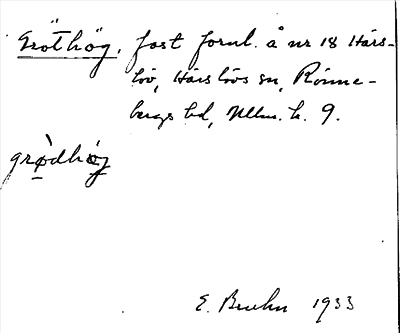 Gröthög, fast fornl. å nr 18 Härs-
löv, Härslövs sn, Rönne-
bergs hd, Mlm. l. 9.
grødhög
E. Bruhn 1933